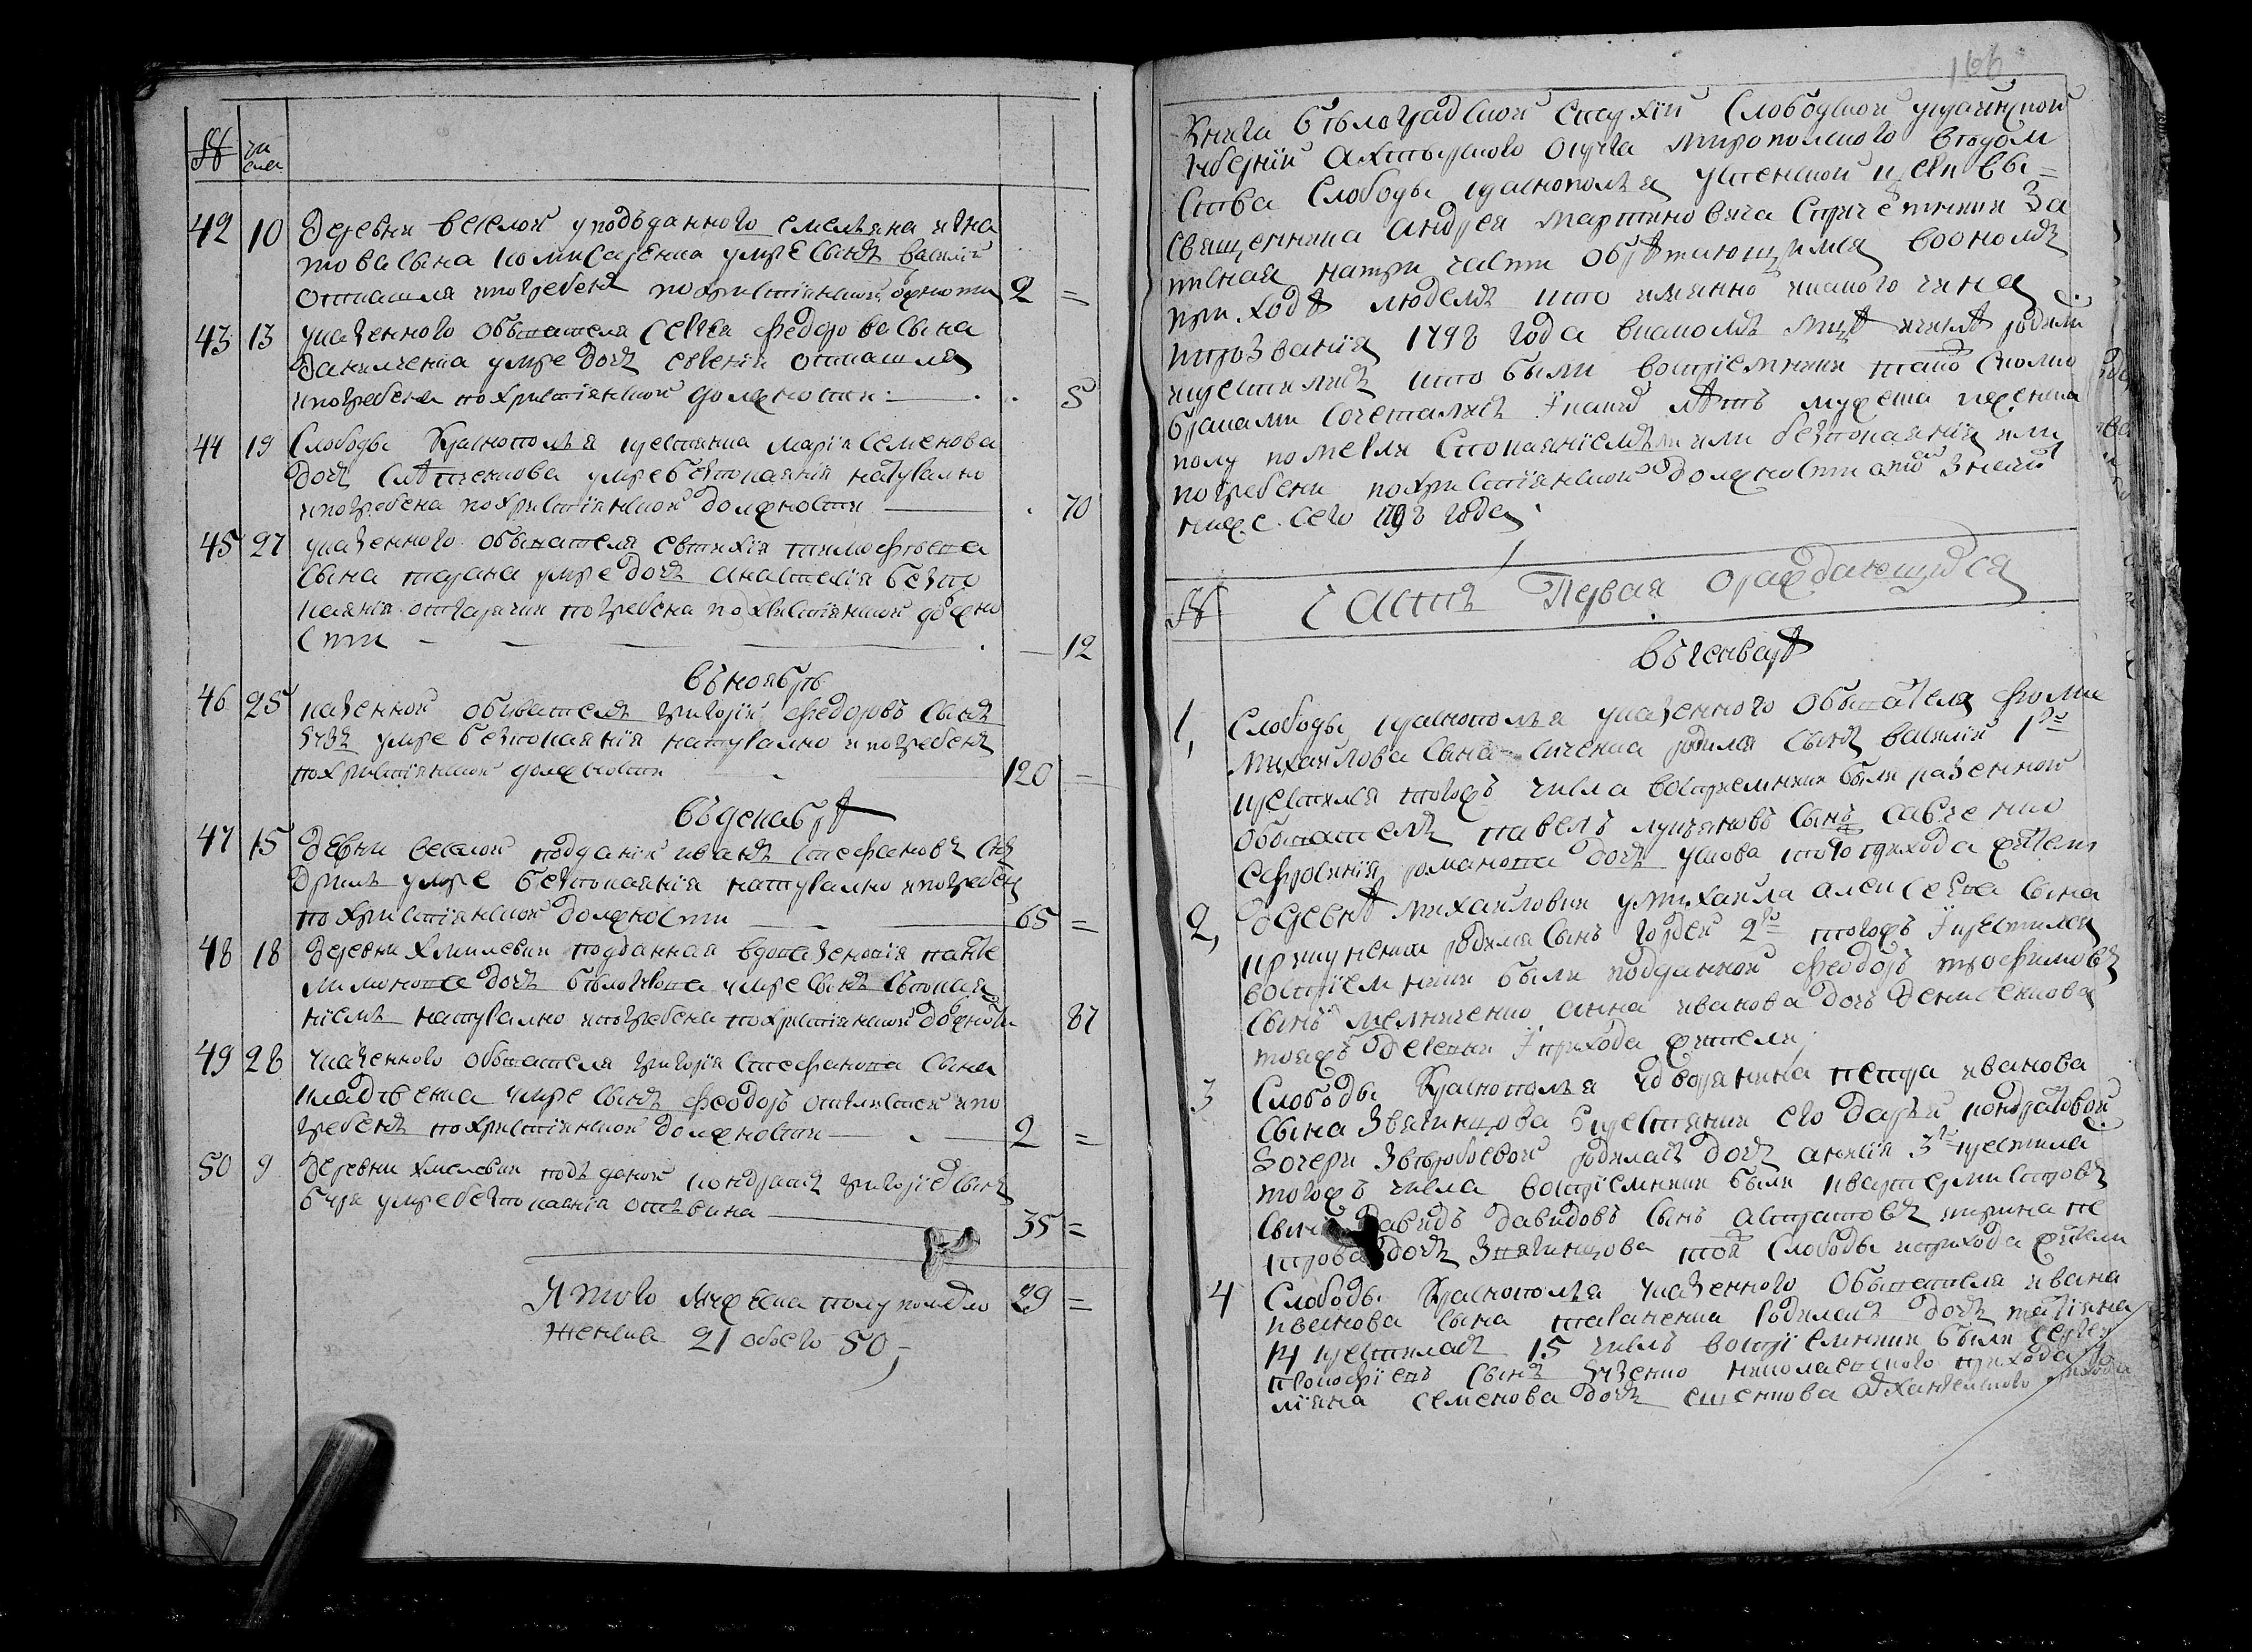 № чи
сла
42 10 Деревни веселой уподъданного емелияна игна
това сына комисаренка умре сынъ василій
откашля ипогребенъ похристіянской должности 2 =
43 13 указенного обывателя сергѣя федорова сына
даниленка умре дочъ евгенія откашля
ипогребена похристіянской должности 5
44 19 Слободы Краснополья крестянка марія семенова
дочъ умре безпокаянія натурально
ипогребена похристіянской должности 70
45 27 указенного обывателя евтихія тимофѣева
сына тарана умре дочъ анастасія безпо
каянія отгарячки погребена похристіянской должно
сти 12
въноябрѣ
46 25 казенной обыватель григорій федоровъ сынъ
умре безпокаянія натурально ипогребенъ
похристіянской должности 120 =
въдекабрѣ
47 15 деревни веселой подданій иванъ стефановъ снъ
умре безпокаянія натурально ипогребенъ
похристіянской должности 65 =
48 18 деревни хмилевки подданная вдова
дочъ умре спокая
ніемъ натурально ипогребена похристіянской должности 87
49 28 указенного обывателя григорія стефанова сына
умре сынъ феодоръ ипо
гребенъ похристіянской должности 2 =
50 9 деревни хмелевки подъданой кондратъ григоріевъ сынъ
умре безпокаянія отъвина
35 =
Итого мужеска полу 29 =
женска 21 обоего 50
166
Книга бѣлоградской епархіи Слободской украинской
губерніи ахтырского округа мирополского вѣдом
ства Слободы краснополья успенской церкви свя=
священника андрея мартиновича спричетники За
писная натри части обрѣтающымся воономъ
приходѣ людемъ кто имянно икакого чина
ипрозванія 1798 года вкакомъ мцѣ ичислѣ родили
икрестилисъ кто были воспріемники такожъ сколко
браками сочеталисъ Iкакихъ лѣтъ мужеска иженска
полу померли спокаяніемъ или безпокаянія или
погребени похристіянской должности
ниже сего 1798 года
№ Часть Первая ораждающихся
въгенварѣ
1, Слободы краснополья указенного обывателя фомы
михайлова сына родился сынъ василій 1го
крестился тогожъ числа воспріемники были казенной
обыватель павелъ лукяновъ сынъ савченко
ефросинія романова дочъ того прихода жители
2, деревнѣ михайловки умихайла алексѣева сына
родился сынъ гордей 2го тогожъ Iкрестился
воспріемники были подданной феодоръ трофимовъ
сынъ мелниченко анна иванова дочъ денисенкова
тояжъ деревни Iприхода жители
3 Слободы Краснополья удворянина петра иванова
сына звягинцова укрестянки его дарьи кондратовой
дочери родиласъ дочъ 3го крестила
тогожъ числа воспріемники были
сынъ давидъ давидовъ сынъ иирина пе
трова дочъ звягинцова той слободы иприхода жители
4 Слободы Краснополья указенного обывателя ивана
иванова сына родиласъ дочъ татіяна
14 крестиласъ 15 числъ воспріемники были сергей
прокофіевъ сынъ николаевского прихода у
ліяна семенова дочъ архангелского прихода